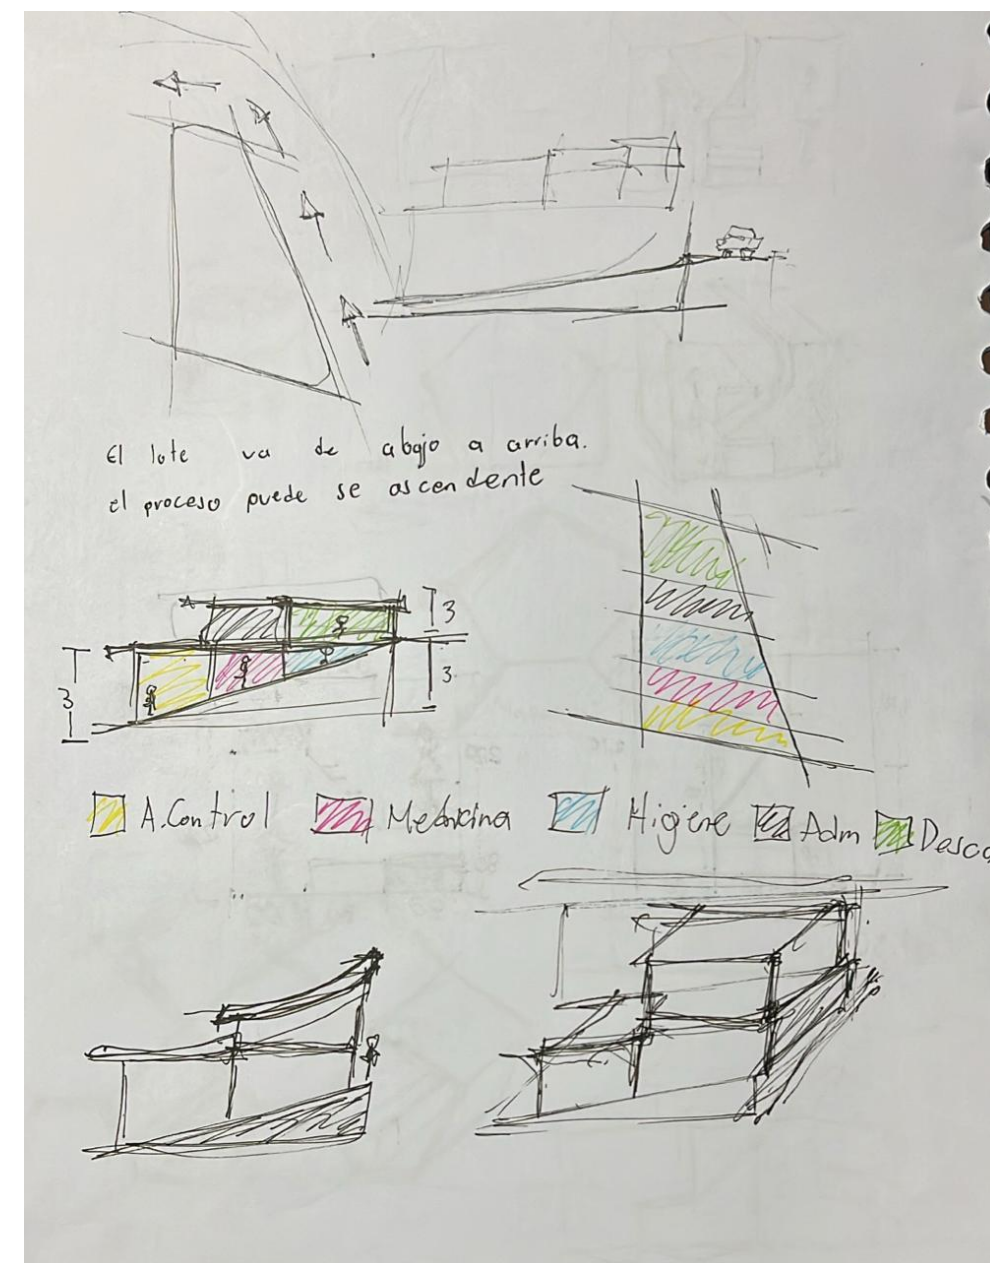 El lote va de abajo a arriba.
el proceso puede se ascendente
3
3
3
A.Control Medicina Higiene Adm Desca